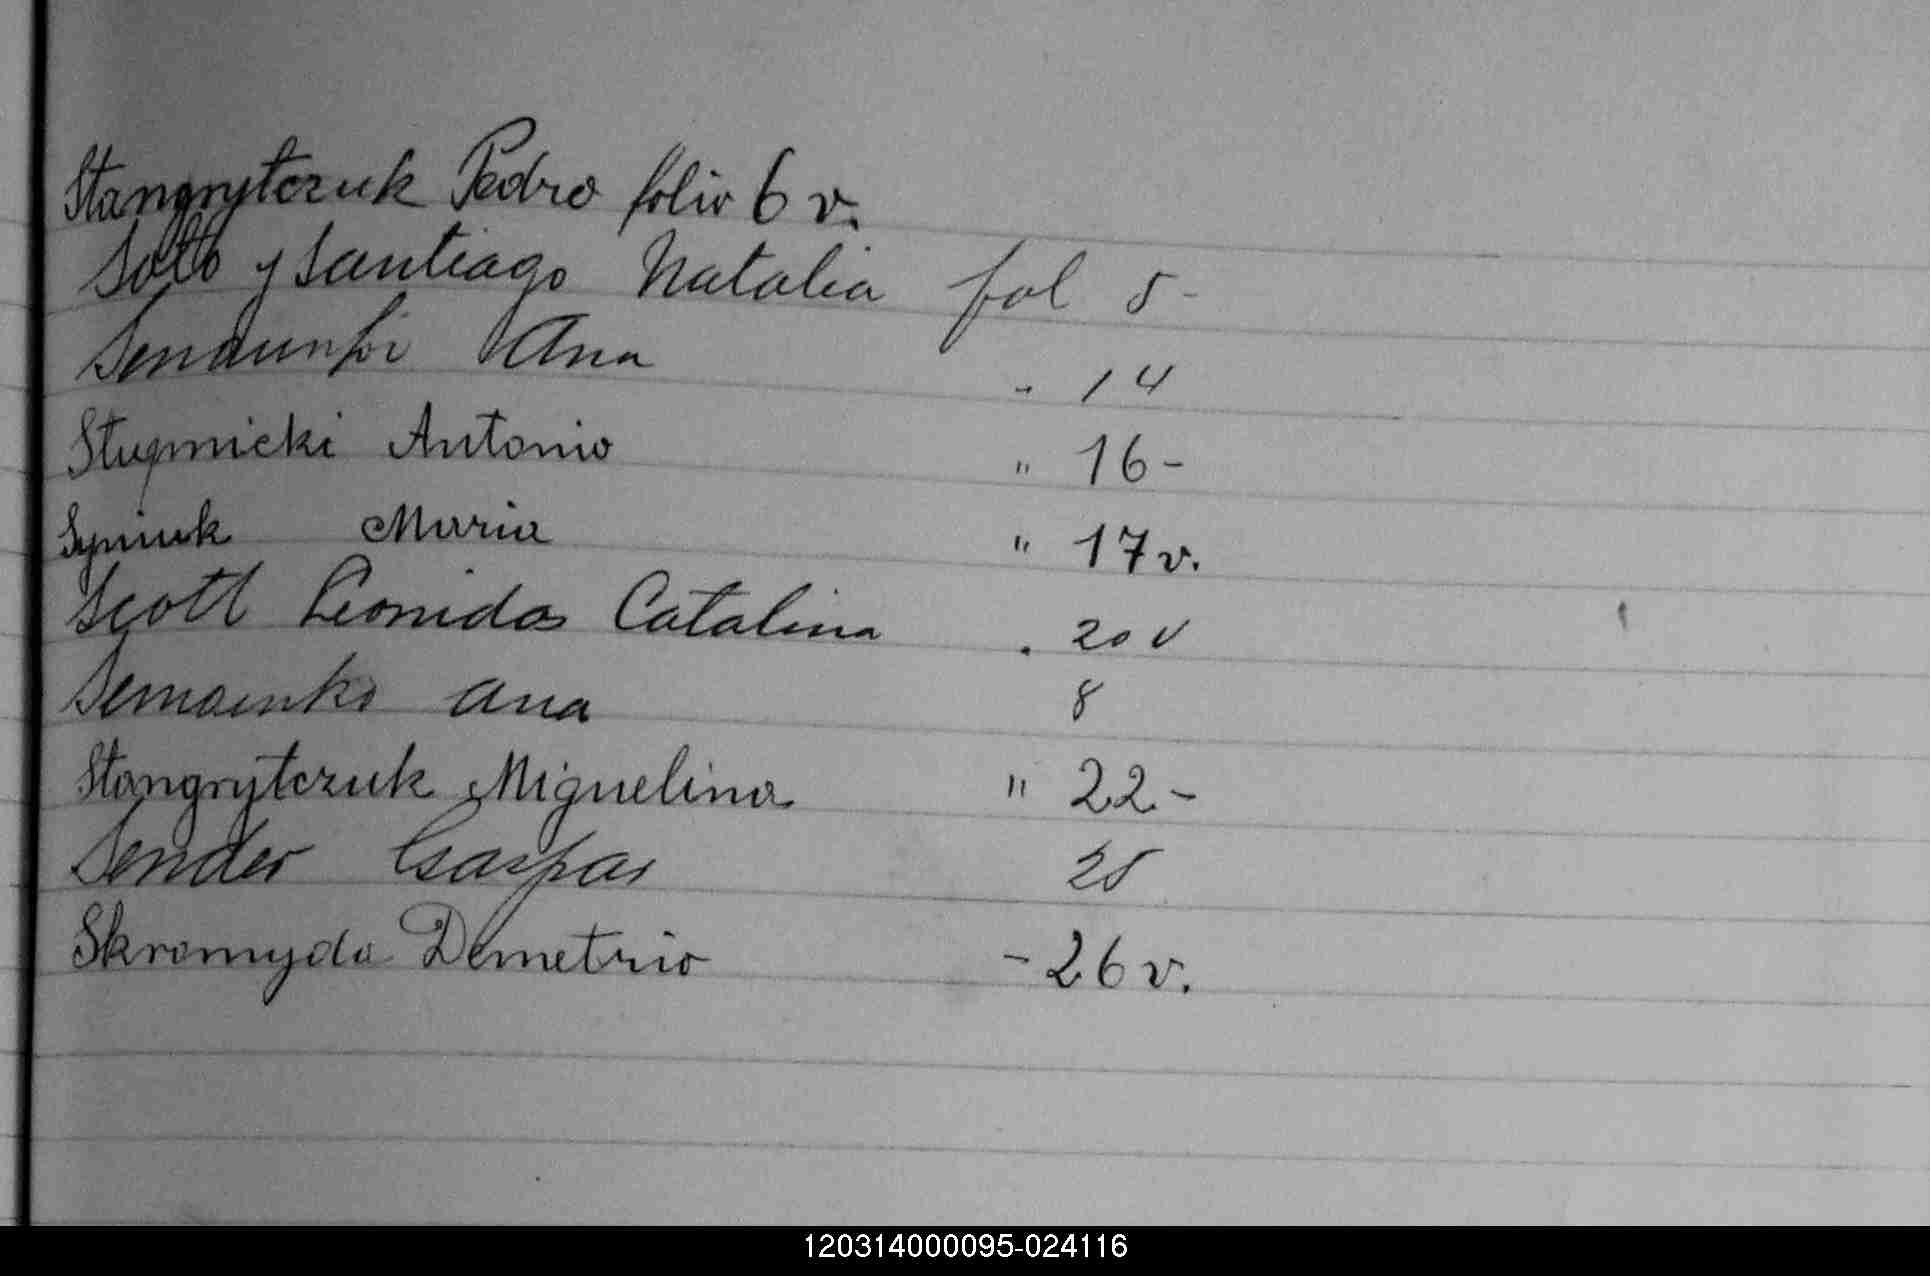 Stangrytczuk Pedro folio 6 v.
Soto y Santiago Natalia fol 5 -
Ana - 14
Stupnicki Antonio " 16 -
Syniuk Maria " 17 v.
Scott Leonidas Catalina . 20 v
Ana 8
Stangrytczuk Miguelina " 22. -
Sender Gaspar 25
Skromyda Demetrio - 26 v.
120314000095-024116